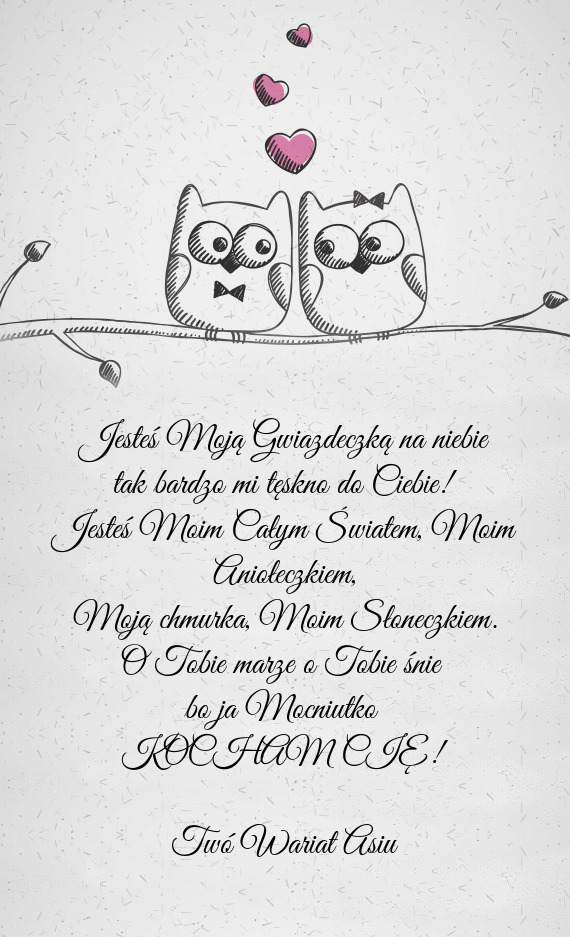 Jesteś Moją Gwiazdeczką na niebie
tak bardzo mi tęskno do Ciebie!
Jesteś Moim Całym Światem, Moim
Aniołeczkiem,
Moją chmurka, Moim Słoneczkiem.
O Tobie marze o Tobie śnie
bo ja Mocniutko
KOCHAM CIĘ!
Twó Wariat Asiu